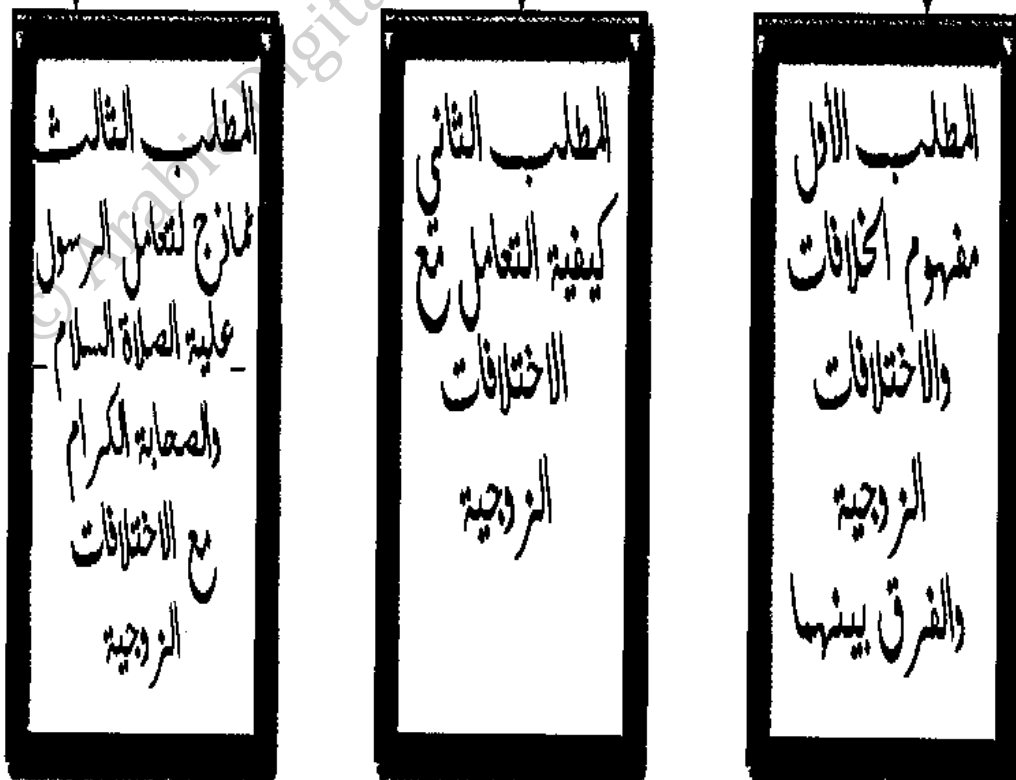 المطلب الأول
مفهوم الخلافات
والاختلافات
الزوجية
والفرق بينهما
المطلب الثاني
كيفية التعامل مع
الاختلافات
الزوجية
المطلب الثالث
نماذج لتعامل الرسول
_علية الصلاة السلام_
والصحابة الكرام
مع الاختلافات
الزوجية
© Arabic Digita